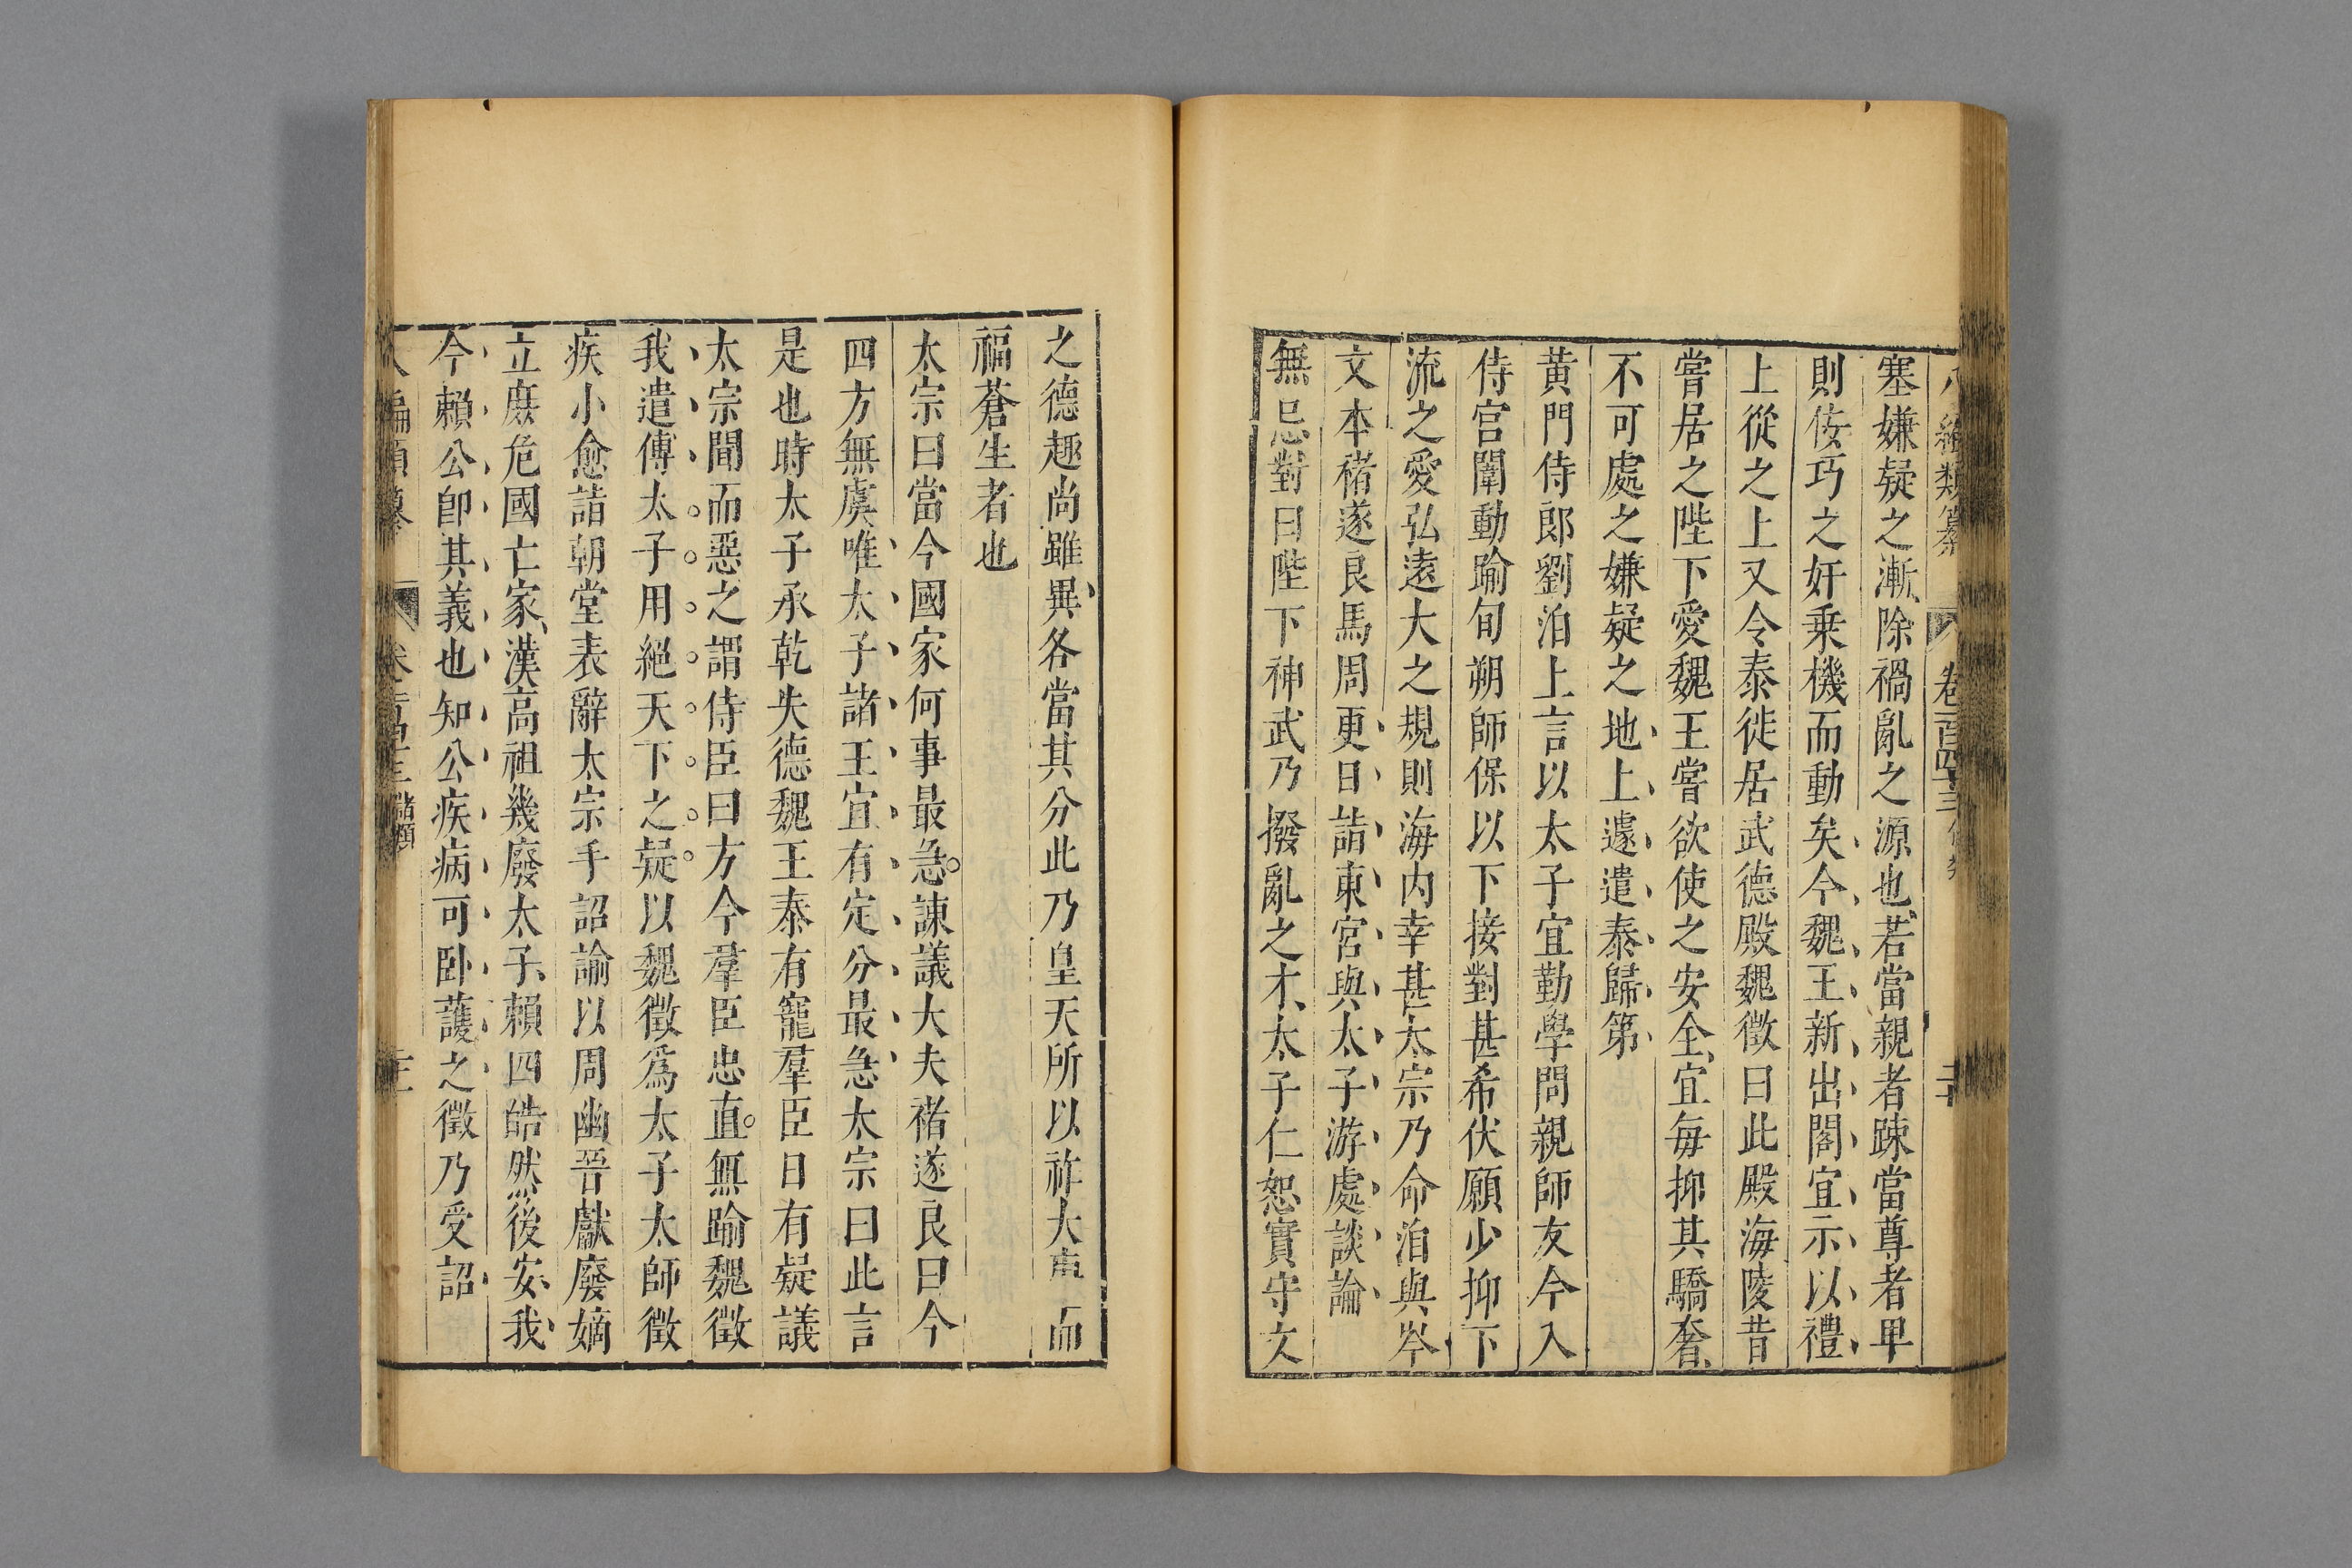 編類纂 卷一百四十三 二十
塞嫌疑之漸除禍亂之源也若當親者踈當尊者卑
則佞巧之奸乗機而動矣今魏王新出閣宜示以禮
上從之上又令泰徙居武德殿魏徵曰此殿海陵昔
嘗居之陛下愛魏王嘗欲使之安全宜每抑其驕奢
不可處之嫌疑之地上遽遣泰歸第
黃門侍郎劉洎上言以太子宜勤學問親師友今入
侍宫闈動踰旬朔師保以下接對甚希伏願少抑下
流之愛弘遠大之規則海内幸甚太宗乃命洎與岑
文本褚遂良馬周更日詣東宮與太子游處談論
無忌對曰陛下神武乃撥亂之才太子仁恕實守文
之德趣尚雖異各當其分此乃皇天所以祚大而
福蒼生者也
太宗曰當今國家何事最急諫議大夫褚遂良曰今
四方無虞唯太子諸王宜有定分最急太宗曰此言
是也時太子承乾失德魏王泰有寵羣臣日有疑議
太宗聞而惡之謂侍臣曰方今羣臣忠直無踰魏徵
我遣傅太子用絕天下之疑以魏徵爲太子太師徵
疾小愈詣朝堂表辭太宗手詔諭以周幽晉獻廢嫡
立庶危國亡家漢高祖幾廢太子賴四皓然後安我
今賴公卽其義也知公疾病可卧護之徵乃受詔
編類纂 儲類